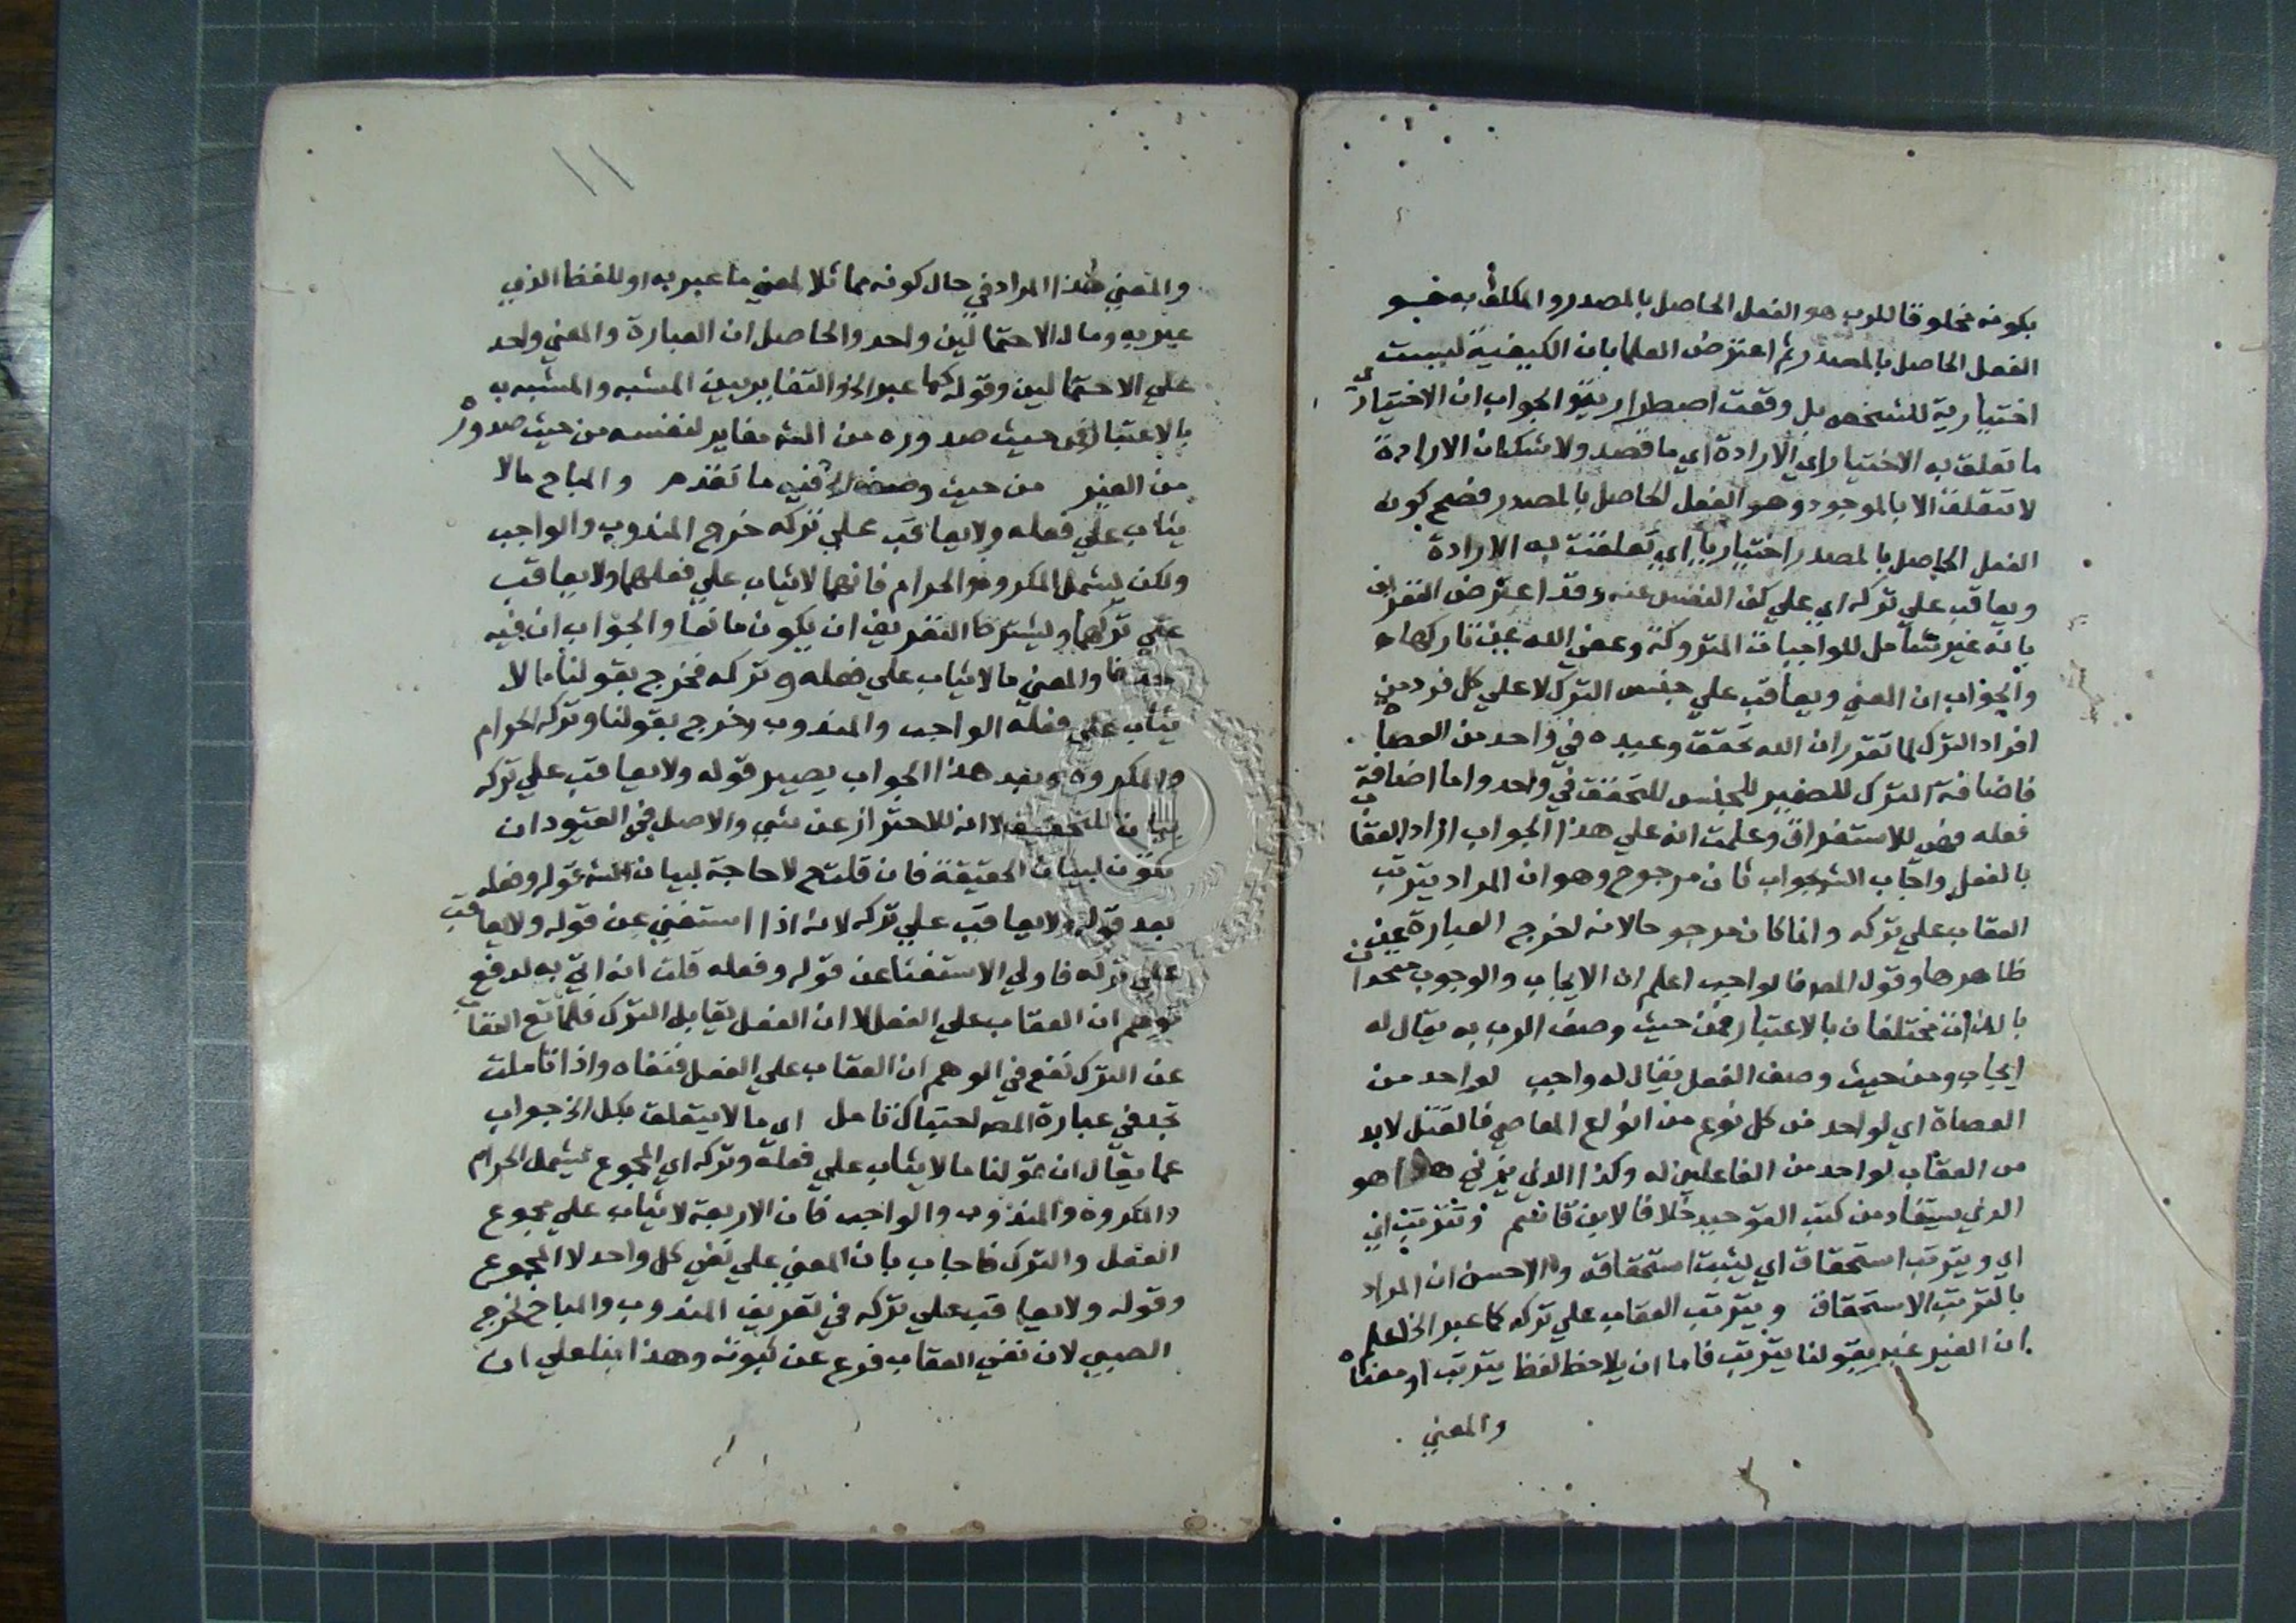 بكونه مخلوقا للرب هو الفعل الحاصل بالمصدر والمكلف به هو
الفعل الحاصل بالمصدر ثم اعترض العلما بان الكيفية ليست
اختيارية للشخص بل وقعت اضطرارية والجواب ان الاختياري
ما تعلق به الاختيار اي الارادة اي ما قصد ولا شك ان الارادة
لا تتعلق الا بالموجود وهو الفعل الحاصل بالمصدر فصح كون
الفعل الحاصل بالمصدر اختياريا اي تعلقت به الارادة
ويعاقب على تركه اي على كف النفس عنه وقد اعترض التعريف
بانه غير شامل للواجبات المتروكة وعفى الله عن تاركها
والجواب ان المعني ويعاقب علي جنس الترك لا علي كل فرد من
افراد الترك لما تقرر ان الله يحقق وعيده في واحد من العصاة
فاضافة الترك للضمير للجنس للتحقق في واحد واما اضافة
فعله فهي للاستغراق وعلمت انه علي هذا الجواب اراد العقاب
بالفعل واجاب الش بجواب ثان مرجوح وهو ان المراد يترتب
العقاب علي تركه وانما كان مرجوحا لانه لخرج العبارة عن
ظاهرها وقول المص فالواجب اعلم ان الايجاب والوجوب متحدان
بالذات مختلفان بالاعتبار فمن حيث وصف الرب به يقال له
ايجاب ومن حيث وصف الفعل يقال له واجب لواحد من
العصاة اي لواحد من كل نوع من انواع المعاصي فالقتل لا بد
من العقاب لواحد من الفاعلين له وكذا الذي يزني هذا هو
الذي يستفاد من كتب التوحيد خلافا لابن قاسم وتترتب اي
اي ويترتب استحقاق اي يثبت استحقاقه والاحسن ان المراد
بالترتب الاستحقاق ويترتب العقاب علي تركه كما عبر الخ اعلم
ان الغير عبر بقولنا يترتب فاما ان يلاحظ لفظ يترتب او معناه
والمعني
١١
والمعني هذا المراد في حال كونه مماثلا لمعني ما عبر به او للفظ الذي
عبر به ومال الاحتمالين واحد والحاصل ان العبارة والمعني واحد
علي الاحتمالين وقوله كما عبر الخ والتغاير بين المشبه والمشبه به
بالاعتبار فمن حيث صدوره من الش مغاير لنفسه من حيث صدوره
من الغير من حيث وصفه الخ فيه ما تقدم والمباح ما لا
يثاب علي فعله ولا يعاقب علي تركه خرج المندوب والواجب
ولكن يشمل المكروه والحرام فانهما لا يثاب علي فعلهما ولا يعاقب
علي تركهما ويشترط التعريف ان يكون مانعا والجواب ان فيه
حذفا والمعني ما لا يثاب علي فعله وتركه فخرج بقولنا ما لا
يثاب علي فعله الواجب والمندوب وخرج بقولنا وتركه الحرام
والمكروه وبعد هذا الجواب يصير قوله ولا يعاقب علي تركه
بيان للحقيقة لا انه للاحتراز عن شي والاصل في القيود ان
تكون لبيان الحقيقة فان قلت ح لا حاجة لبيان الش بقوله وفعله
بعد قوله ولا يعاقب علي تركه لانه اذا استغني عن قوله ولا يعاقب
علي تركه فاولي الاستغنا عن قوله وفعله قلت انه اتي به لدفع
توهم ان العقاب علي الفعل لا ان الفعل يقابل الترك فلما نفي العقاب
عن الترك نفع في الوهم ان العقاب علي الفعل فنفاه واذا تاملت
تجد في عبارة المص احتباك تامل اي ما لا يتعلق بكل الخ جواب
عما يقال ان قولنا ما لا يثاب علي فعله وتركه اي المجموع فيشمل الحرام
والمكروه والمندوب والواجب فان الاربعة لا يثاب علي مجموع
الفعل والترك فاجاب بان المعني علي نفي كل واحد لا المجموع
وقوله ولا يعاقب علي تركه في تعريف المندوب والمباح لخرج
الصبي لان نفي العقاب فرع عن ثبوته وهذا بنا علي ان